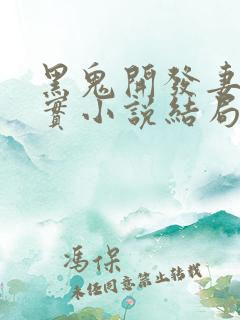 黑鬼開發妻
實小說結局
馮保
未经同意禁止转载